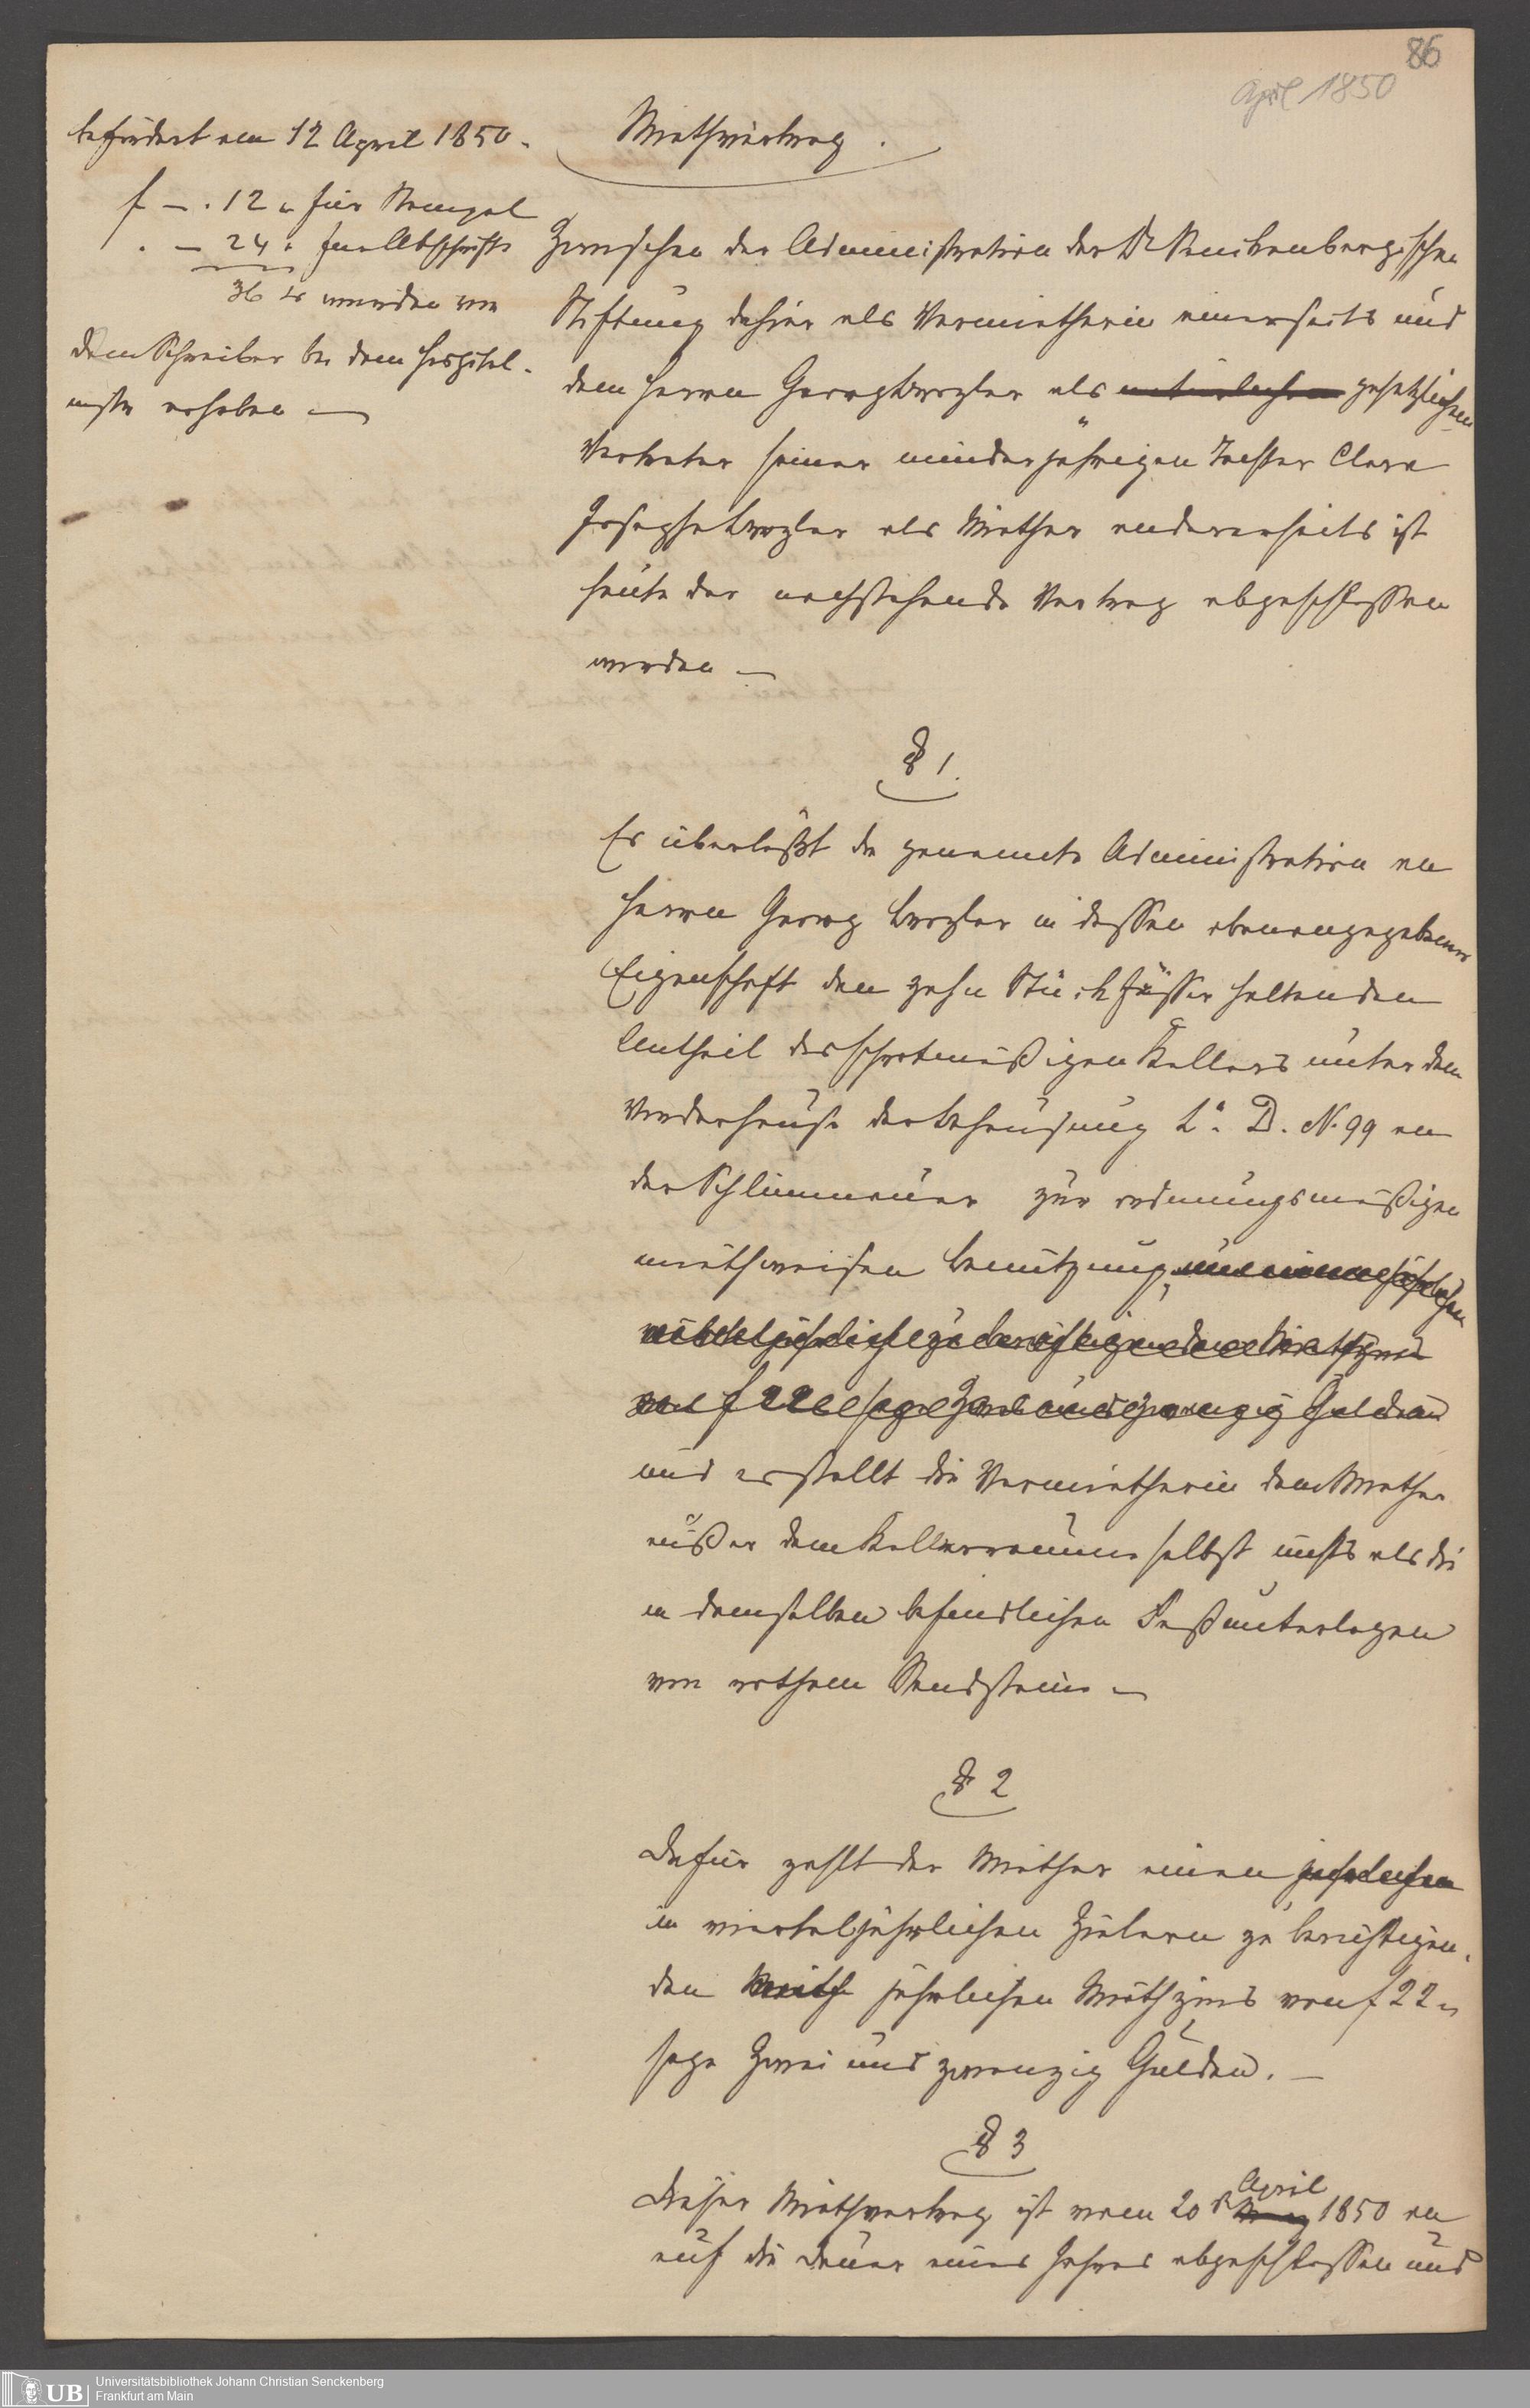 86
April 1850
befördert am 12 April 1850.
f — . 12 x für Stempel
. — 24 x für Abschrift
36 xr wurden von
dem Schreiber bei dem Hospital-
meister erhoben —
Miethvertrag.
Zwischen der Administration der Dr Senckenbergischen
Stiftung dahier als Vermietherin einerseits und
dem Herrn Georg Lexzler als natürlichen gesetzlichen
Vertreter seiner minderjährigen Tochter Clara
Josepha als Miether andererseits ist
heute der nachstehende Vertrag abgeschlossen
worden —
§ 1.
Es überläßt die genannte Administration an
Herrn Georg in dessen obenangegebener
Eigenschaft den zehn Stückfässer haltenden
Antheil des schrotmäßigen Kellers unter dem
Vorderhause der Behausung La. D. No. 99 an
der Schlimmauer zur ordnungsmäßigen
miethweisen Benutzung, um einen jährlichen
vierteljährlich zu berichtigenden Miethzins
von f 22 sage Zwei und zwanzig Gulden
und er stellt die Vermietherin dem Miether
außer dem Kellerraume selbst nichts als die
in demselben befindlichen Faßunterlagen
von rothem Sandstein —
§ 2
Dafür zahlt der Miether einen jährlichen
in vierteljährlichen Zielern zu berichtigen-
den Mieth jährlichen Miethzins von f 22
sage Zwei und zwanzig Gulden. —
§ 3
April
Dieser Miethvertrag ist vom 20 May 1850 an
auf die Dauer eines Jahres abgeschlossen und
UB
Universitätsbibliothek Johann Christian Senckenberg
Frankfurt am Main